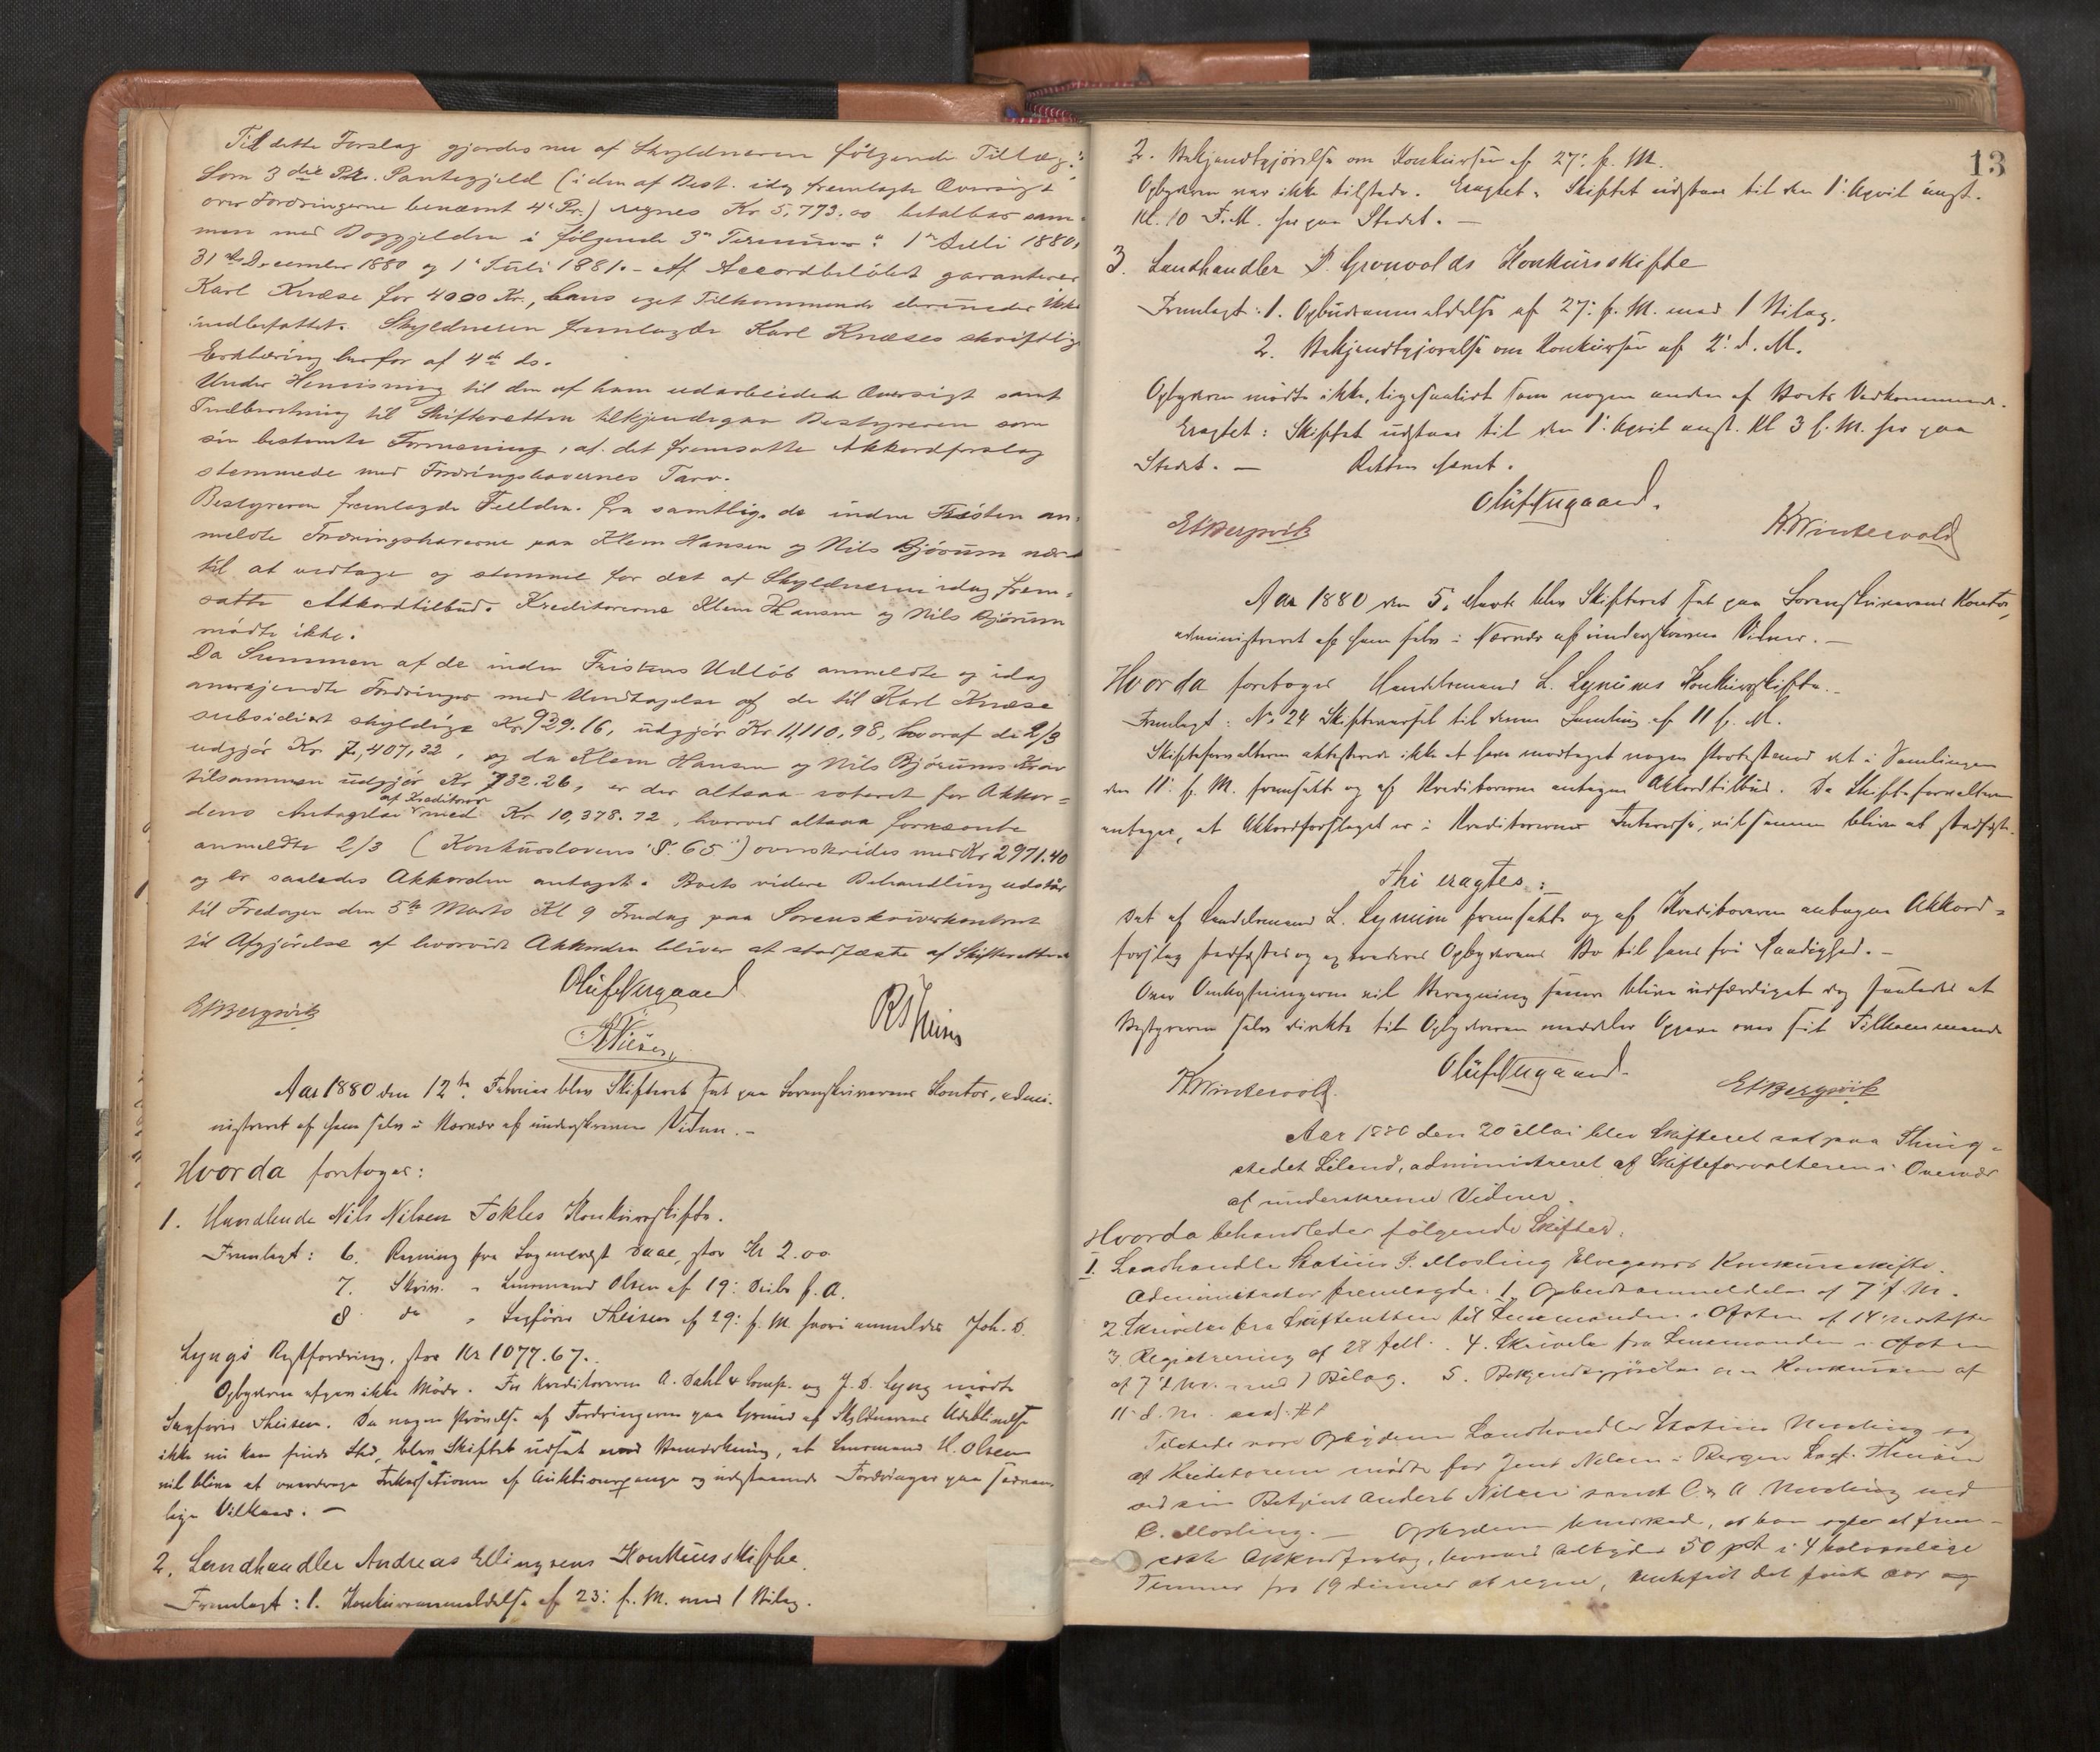 Til dette Forslag gjordes nu af Skyldneren følgende Tillæg:
Som 3die Pr. Pantegjeld (i den af Best. idag fremlagte Oversigt
over Fordringerne benævnt 4de Pr.) regnes Kr 5,773.00 betalbar sam-
men med Boggjelden i følgende 3de Terminer: 1ste Juli 1880,
31te December 1880 og 1ste Juli 1881. – Af Accordbeløbet garanterer
Karl Knæse for 4000 Kr., hans eget Tilkommende derunder ikke
indbefattet. Skyldneren fremlagde Karl Knæses skriftlige
Erklæring herfor af 4de ds.
Under Henvisning til den af ham udarbeidede Oversigt samt
Indberetning til Skifteretten tilkjendegav Bestyreren som
sin bestemte Formening, at det fremsatte Akkordforslag
stemmede med Fordringshavernes Tarv.
Bestyreren fremlagde Fuldm. fra samtlige de inden Fristen an-
meldte Fordringshaverne paa Klem Hansen og Nils Bjørum nær
til at vedtage og stemme for det af Skyldneren idag frem-
satte Akkordtilbud. Kreditorerne Klem Hansen og Nils Bjørum
mødte ikke.
Da Summen af de inden Fristens Udløb anmeldte og idag
anerkjendte Fordringer med Undtagelse af de til Karl Knæse
subsidiært skyldige Kr. 939.16, udgjør Kr. 11,110,98, hvoraf de 2/3
udgjør Kr 7,407,32, og da Klem Hansen og Nils Bjørums Krav
tilsammen udgjør Kr 732.26, er der altsaa voteret for Akkor-
af Kreditorer
dens Antagelse med Kr 10,378.72, hvorved altsaa fornævnte
anmeldte 2/3 (Konkurslovens §. 65) overskrides med Kr 2971.40
og er saaledes Akkorden antaget. Boets videre Behandling udstår
til Fredagen den 5te Marts Kl 9 Formidag paa Sorenskriverkontoret
til Afgjørelse af hvorvidt Akkorden bliver at stadfæste af Skifteretten
Oluf Aagaard
E Bergsvik
R Theisen
Aar 1880 den 12te Februar blev Skifteret sat paa Sorenskriverens Kontor, admi-
nistreret af ham selv i Nærvær af underskrevne Vidner. –
Hvorda foretoges:
1. Handlende Nils Nilsen Fokles Konkursskifte.
Fremlagt: 6. Regning fra Dagmengst Daae, stor Kr 2.00
7. Skriv. „ Lensmand Olsen af 19: Decbr f. A.
8 do „ Sagfører Theisen af 29: f. M. hvori anmeldes Joh. D.
Lyngs Restfordring, stor Kr 1077.67.
Opbyderen afgav ikke Møde. For Kreditorerne A. Dahl & Comp. og J. D. Lyng mødte
Sagfører Theisen. Da nogen Prøvelse af Fordringerne paa Grund af Skyldnerens Udeblivelse
ikke nu kan finde Sted, blev Skiftet udsat med Bemærkning, at Lensmand H. Olsen
vil blive at overdrage Inkassationen af Auktionspenge og udestaaende Fordringer paa sædvan-
lige Vilkaar. –
2. Landhandler Andreas Ellingsens Konkursskifte.
Fremlagt: 1. Konkursanmeldelse af 23: f. M. med 1 Bilag.
13
2. Bekjendtgjørelse om Konkursen af 27: f. M.
Opbyderen var ikke tilstede. Eragtet: Skiftet udstaar til den 1: April næst.
Kl. 10 F.M. her paa Stedet. –
3. Landhandler P. Gronvolds Konkursskifte
Fremlagt: 1. Opbudsanmeldelse af 27: f. M. med 1 Bilag.
2. Bekjendtgjørelse om Konkursen af 2: d. M.
Opbyderen mødte ikke, ligesaalidt som nogen anden af Boets Vedkommende.
Eragtet: Skiftet udstaar til den 1: April næst. Kl 3 E. M. her paa
Stedet. – Retten hævet.
Oluf Aagaard.
E Bergsvik
K Wintervold
Aar 1880 den 5. Marts blev Skifteret sat paa Sorenskriverens Kontor,
administreret af ham selv i Nærvær af underskrevne Vidner. –
Hvorda foretoges Handelsmand L. Lynums Konkursskifte. –
Fremlagt: No 24 Skiftevarsel til denne Samling af 11 f. M.
Skifteforvalteren attesterede ikke at have modtaget nogen Protest mod det i Samlingen
den 11: f. M. fremsatte og af Kreditorerne antagne Akkordtilbud. Da Skifteforvalteren
antager, at Akkordforslaget er i Kreditorernes Interesse, vil samme blive at stadfæste.
Thi eragtes:
Det af Handelsmand L. Lynum fremsatte og af Kreditorerne antagne Akkord-
forslag stadfæstes og extraderes Opbyderens Bo til hans fri Raadighed. –
Over Omkostningerne vil Beregning senere blive udfærdiget dog saaledes at
Bestyreren selv direkte til Opbyderen meddeler Opgave over sit Tilkommende
Oluf Aagaard.
K Wintervold.
E Bergsvik
Aar 1880 den 20 Mai blev Skifteret sat paa Thing-
stedet Liland, administreret af Skifteforvalteren i Overvær
af underskrevne Vidner.
Hvorda behandledes følgende Skifter:
1. Landhandler Statius P. Mosling Elvegaards Konkursskifte.
Administrator fremlagde: 1. Opbudsanmeldelse af 7 f. M.
2. Skrivelse fra Skifteretten til Lensmanden i Ofoten af 14:
3. Registrering af 28 . 4. Skrivelse fra Lensmanden i Ofoten
af 7 d. M. med 1 Bilag. 5. Bekjendtgjørelse om Konkursen af
11 d. M.
Tilstede var Opbyderen Landhandler Statius Mosling og
af Kreditorerne mødte for Jent Nilsen i Bergen Sagf. Theisen
ved sin Betjent Anders Nilsen samt C. & A. Mosling ved
C. Mosling. – Opbyderen bemærkede, at han agter at frem-
sætte Akkordforslag, hvorved tilbydes 50 pCt i 4 halvaarlige
Terminer fra 19 dennes at regne, rentefrit det første aar og